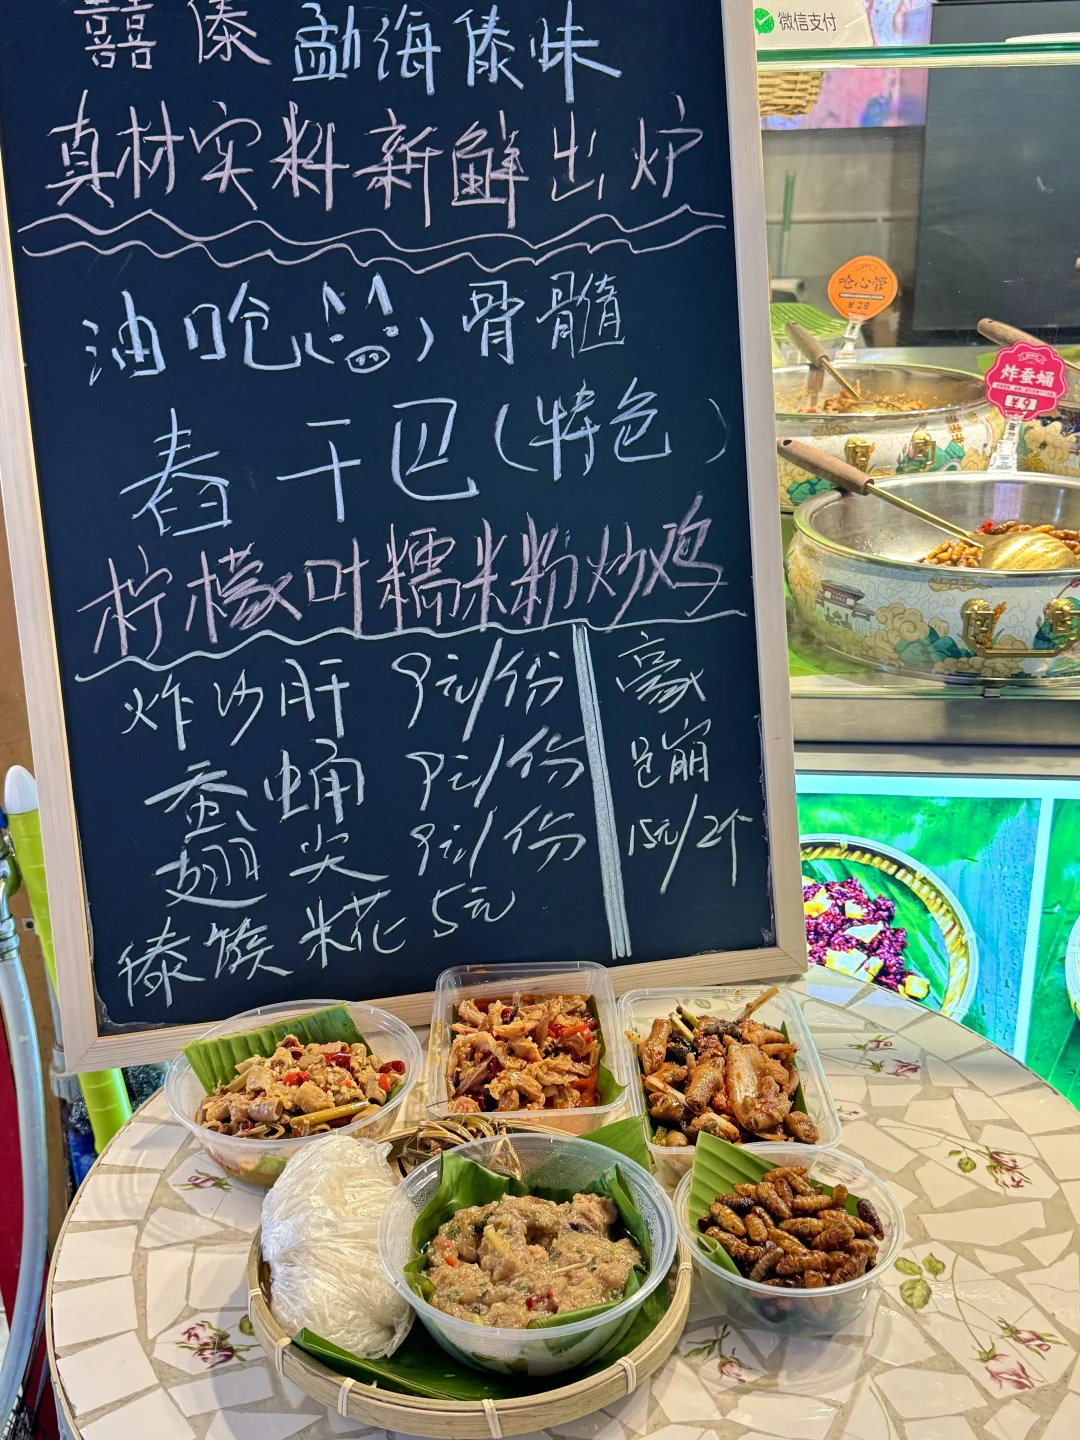 囍傣 勐海傣味
真材实料新鲜出炉
油呛( )骨髓
舂干巴(特色)
柠檬叶糯米粉炒鸡
炸沙肝 9元/份
蚕蛹 9元/份
翅尖 9元/份
傣族米花 5元
豪
崩
15元/2个
微信支付
呛心管
¥28
炸蚕蛹
¥9